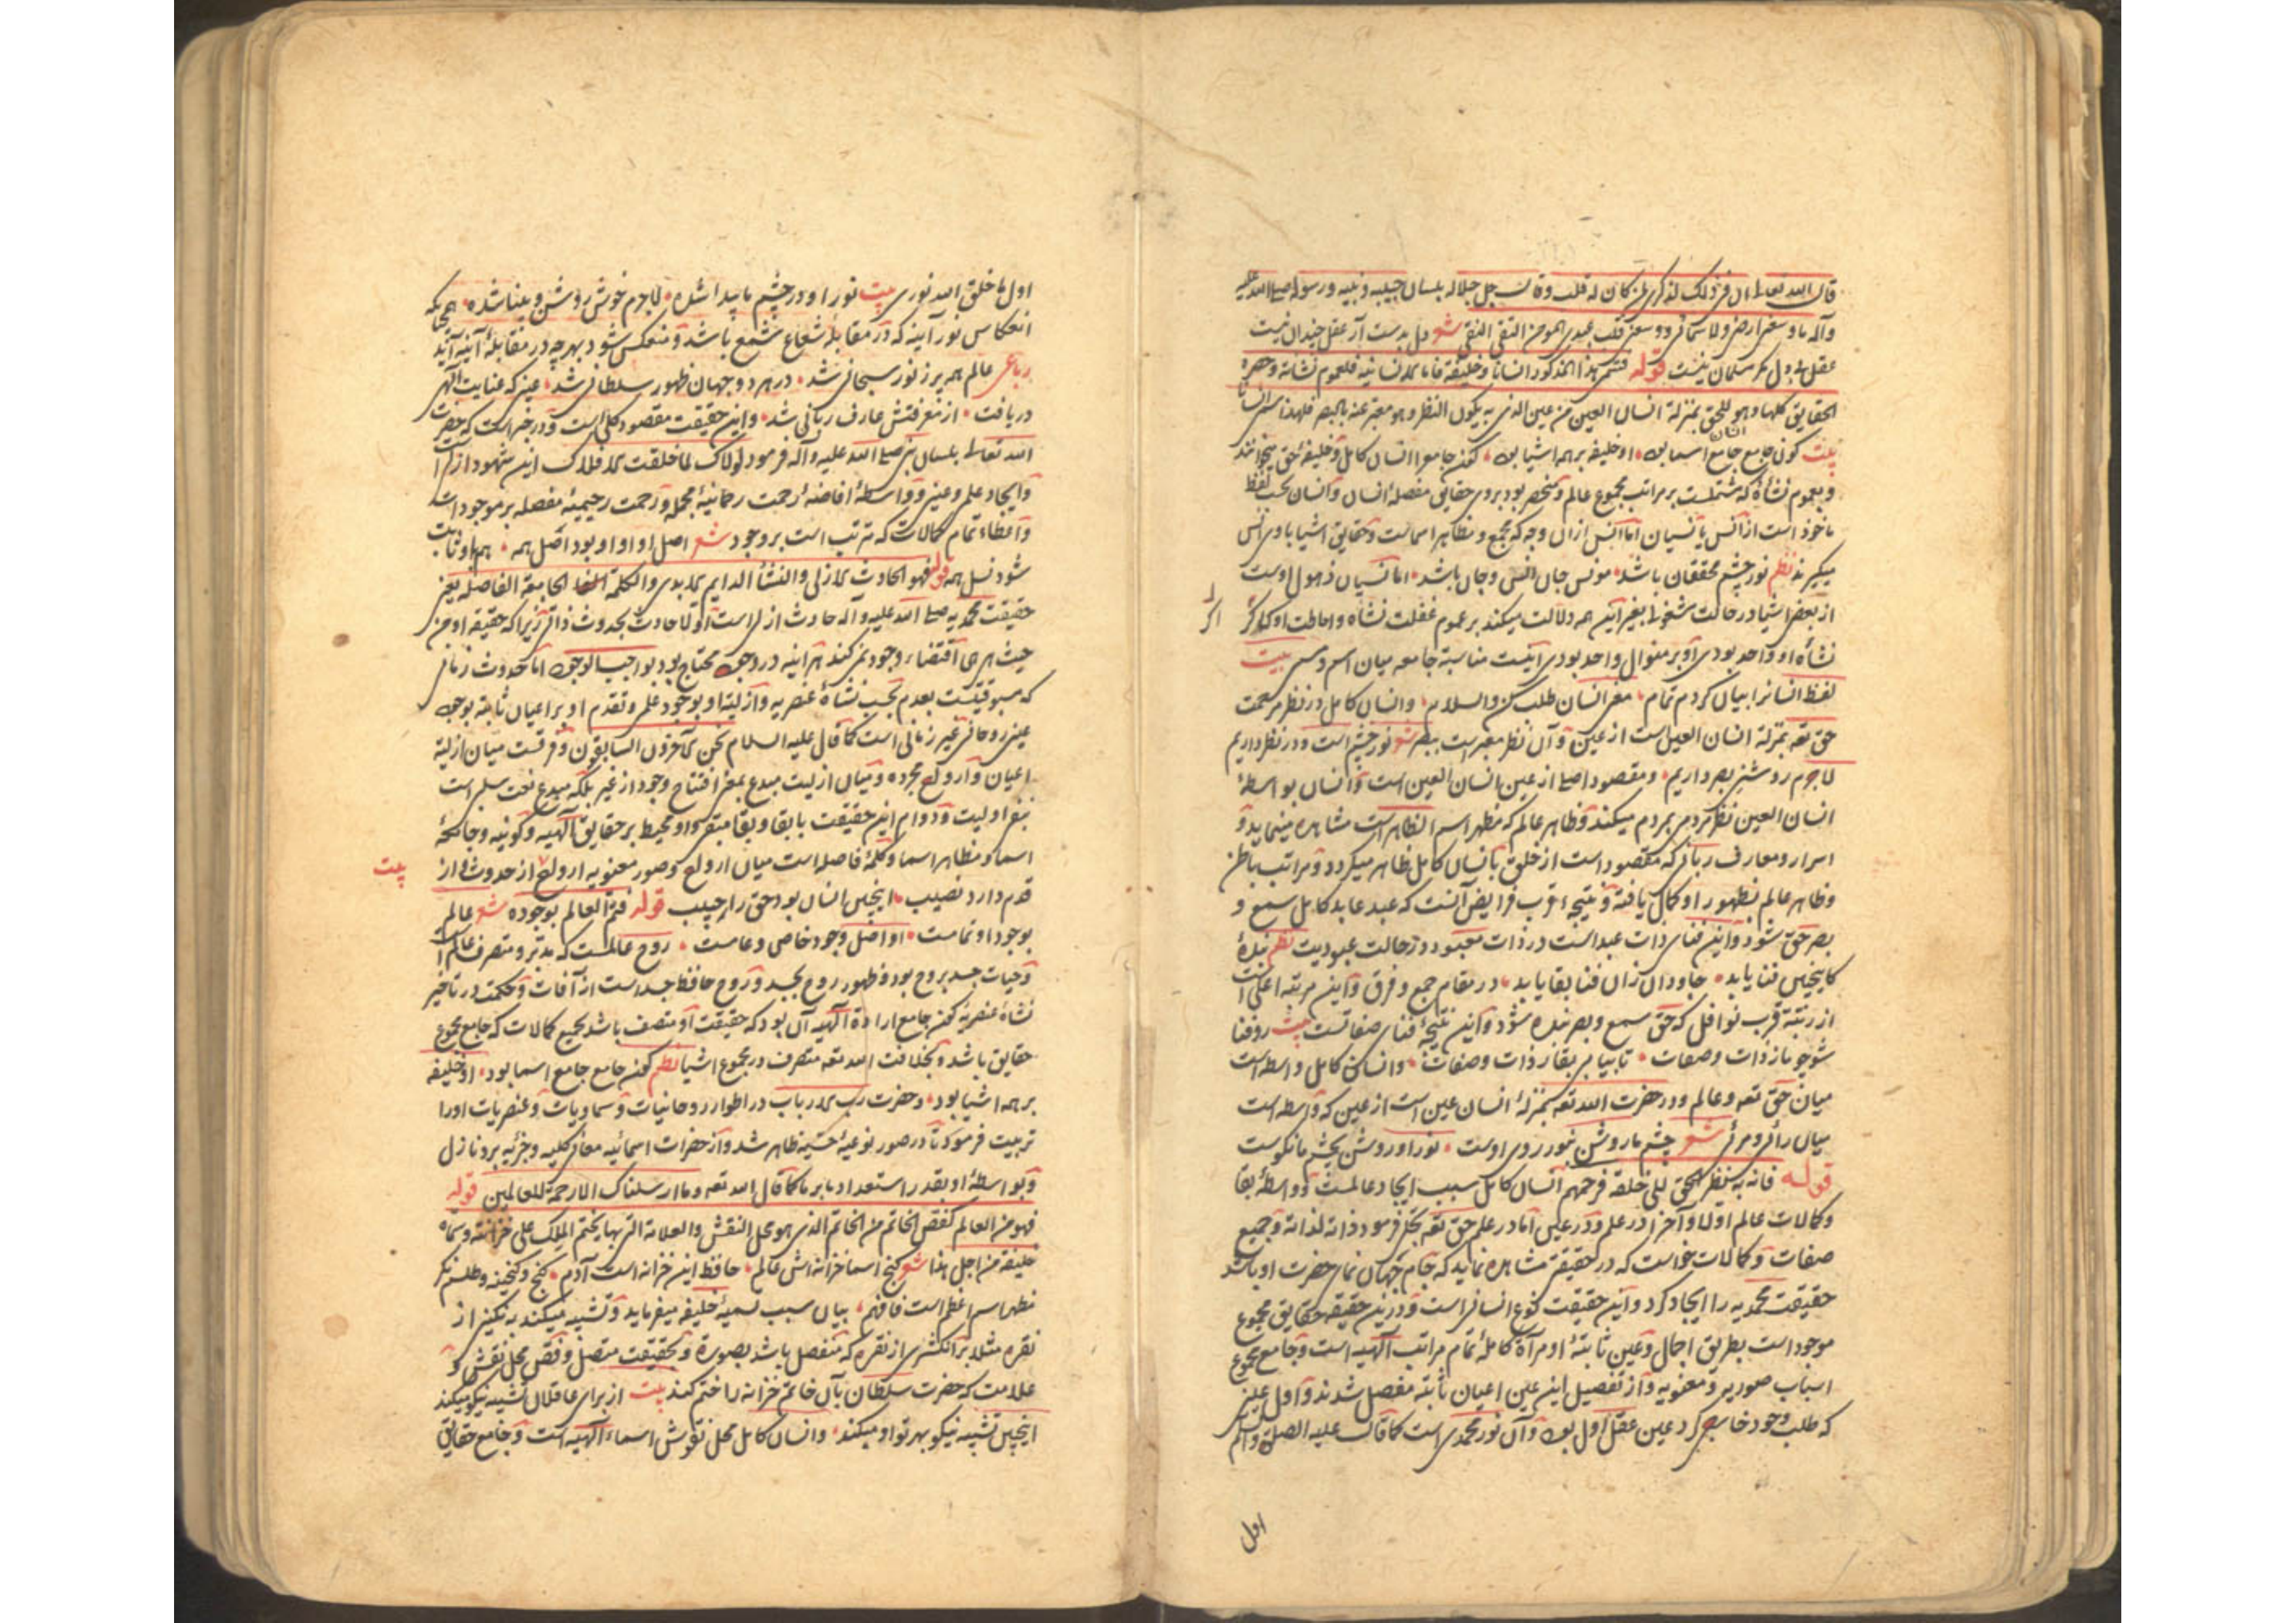 قال الله تعالی ان فی ذلک لذکری لمن کان له قلب وقال جل جلاله بلسان حبیبه ونبیه ورسوله صلی الله علیه
وآله ما وسعنی ارضی ولا سمائی ووسعنی قلب عبدی المومن التقی النقی شعر دل بدست آر عقل چندان نیست
عقل بی دل مگر مسلمان نیست قوله فسمی هذا المذکور انسانا وخلیفة فاما الانسانیه فلعموم نشأته وحصره
الحقایق کلها وهو للحق بمنزلة انسان العین من عین الذی به یکون النظر وهو معبر عنه بالبصر فلهذا سمی انسانا
بیت کون جامع جامع اسما بود او خلیفه بر همه اشیا بود کون جامع را انسان کامل وخلیفهٔ حق میخوانند
وبعموم نشاه که مشتملست بر مراتب مجموع عالم ومنحصر بود بروی حقایق مفصله انسان وانسان بحسب لفظ
ماخوذ است از انس یا نسیان اما انس ازان وجه که مجمع و مظاهر اسماست وحقایق اشیا با وی انس
میگیرند نظم نور چشم محققان باشد مونس جان انس وجان باشد اما نسیان ذهول اوست
از بعض اشیا در حالت مشغولی بغیر این همه دلالت میکند بر عموم غفلت نشاه واحاطت او که اگر
اگر
نشأه او واحد بودی او بر منوال واحد بودی اینست مناسبة جامعه میان اسم ومسمی بیت
لفظ انسانرا بیان کردم تمام معنی انسان طلب کن والسلام وانسان کامل در نظر مرحمت
حق تعه بمنزلهٔ انسان العین است از عین وآن نظر معبر است ببصر شعر نور چشم است ودر نظر داریم
لاجرم روشنی بصر داریم ومقصود اصلی از عین انسان العین است وانسان بواسطهٔ
انسان العین نظر مردمی بمردم میکند وظاهر عالم که مظهر اسم الظاهر است مشاهده مینماید و
اسرار ومعارف ربانی که مقصود است از خلق بانسان کامل ظاهر میگردد ومراتب باطن
وظاهر عالم بظهور او کمال یافته ونتیجهٔ قرب فرایض آنست که عبد عابد کامل سمع و
بصر حق شود واین فنای ذات عبد است در ذات معبود ودر حالت عبودیت نظم بندهٔ
کاینچنین فنا یابد جاودان زان فنا بقا یابد در مقام جمع وفرق واین مرتبه اعلی است
از رتبهٔ قرب نوافل که حق سمع وبصر بنده شود واین نتیجهٔ فنای صفاتست بیت رو فنا
شو چو ما ز ذات وصفات تا بیابی بقا ز ذات وصفات وانسان کامل واسطه است
میان حق تعه وعالم ودر حضرت الله تعه بمنزلهٔ انسان عین است از عین که واسطه است
میان رائی ومرئی شعر چشم ما روشن بنور روی اوست نور او روشن بچشم ما نکوست
قوله فانه به ینظر الحق الی خلقه فرحمهم انسان کامل سبب ایجاد عالمست وواسطهٔ بقا
وکمالات عالم اولا وآخرا در علم ودر عین اما در علم حق تعه تجلی فرمود ذاته لذاته وجمیع
صفات وکمالات خواست که در حقیقتی مشاهده نماید که جام جهان نمای حضرت او باشد
حقیقت محمدیه را ایجاد کرد واین حقیقت نوع انسانی است ودرین حقیقة حقایق مجموع
موجود است بطریق اجمال وعین ثابتهٔ او مرآة کاملهٔ تمام مراتب الهیه است وجامع مجموع
اسباب صوریه ومعنویه واز تفصیل این عین اعیان ثابته مفصل شدند واول عینی
که طلب وجود خارجی کرد عین عقل اول بود وآن نور محمدی است کما قال علیه الصلوة والسلم
اول
اول ما خلق الله نوری بیت نور او در چشم ما پیدا شده لاجرم خوش روشن وبینا شده همچنانکه
انعکاس نور آینه که در مقابلهٔ شعاع شمع باشد ومنعکس شود بهر چه در مقابلهٔ آینه آید
رباعی عالم همه پر ز نور سبحانی شد در هر دو جهان ظهور سلطانی شد عینی که عنایت الهی
دریافت از معرفتش عارف ربانی شد واین حقیقت مقصود کلی است ودر خبر است که حضرت
الله تعالی بلسان نبی صلی الله علیه وآله فرمود لولاک لما خلقت الافلاک این شهود ازلی است
وایجاد علمی وعینی وواسطهٔ افاضهٔ رحمت رحمانیهٔ مجمله ورحمت رحیمیهٔ مفصله بر موجودات
واعطاء تمام کمالات که مترتب است بر وجود شعر اصل او او او بود اصل همه هم باو ثابت
شود نسل همه قوله فهو الحادث الازلی والنشأ الدایم الابدی والکلمة الجامعة الفاصله یعنی
حقیقت محمدیه صلی الله علیه وآله حادث ازلی است اولا حادث بحدوث ذاتی زیرا که حقیقه او من
حیث هی هی اقتضاء وجود نمی کند هر آینه در وجود محتاج بود بواجب الوجود اما حدوث زمانی
که مسبوقیتست بعدم بحسب نشأة عنصریه وازلیة او بوجود علمی وتقدم او بر اعیان ثابته بوجود
عینی روحانی غیر زمانی است کما قال علیه السلام نحن الآخرون السابقون وفرقست میان ازلیة
اعیان وارواح مجرده ومیان ازلیت مبدع بمعنی افتتاح وجود از غیر بلکه مبدع نعت سلبی است
بنفی اولیت ودوام این حقیقت بابقا وبقا متقی واو محیط بر حقایق الهیه وکونیه وجامعهٔ
اسما ومظاهر اسما وکلمهٔ فاصله است میان ارواح وصور معنویه ارواح از حدوث واز
بیت
قدم دارد نصیب اینچنین انسان بود حق را حبیب قوله فتم العالم بوجوده شعر عالم
بوجود او تمامست او اصل وجود خاص وعامست روح عالمست که مدبر ومتصرف عالم است
وحیات جسد بروح بود وظهور روح بجسد وروح حافظ جسد است از آفات وحکمت در تاخیر
نشأة عنصریه کون جامع ارادة الهیه آن بود که حقیقت او متصف باشد بجمیع کمالات که جامع مجموع
حقایق باشد وبخلافت الله تعه متصرف در مجموع اشیا نظم کون جامع جامع اسما بود او خلیفه
بر همه اشیا بود وحضرت رب الارباب در اطوار روحانیات وسماویات وعنصریات اورا
تربیت فرمود تا در صور نوعیهٔ حسّیه ظاهر شد واز حضرات اسمائیه معانی کلیه وجزئیه برو نازل
وبواسطهٔ او بقدر استعداد ما بر ما کما قال الله تعه وما ارسلناک الا رحمة للعالمین قوله
فهو من العالم کفص الخاتم من الخاتم الذی هو محل النقش والعلامة التی بها یختم الملک علی خزانته وسماه
خلیفة من اجل هذا شعر گنج اسما خزانه اش عالم حافظ این خزانه است آدم گنج وگنجینه وطلسم نگر
مظهر اسم اعظم است فافهم بیان سبب تسمیهٔ خلیفه میفرماید وتشبیه میکند بنگینی از
نقره مثلا بر انگشتری از نقره که منفصل باشد بصورة وبحقیقت متصل وفص محل نقش و
علامت که حضرت سلطان بآن خاتم خزانه را ختم کند بیت از برای عاقلان تشبیه نیکو میکند
اینچنین تشبیه نیکو بهر تو او میکند وانسان کامل محل نقوش اسماء الهیه است وجامع حقایق